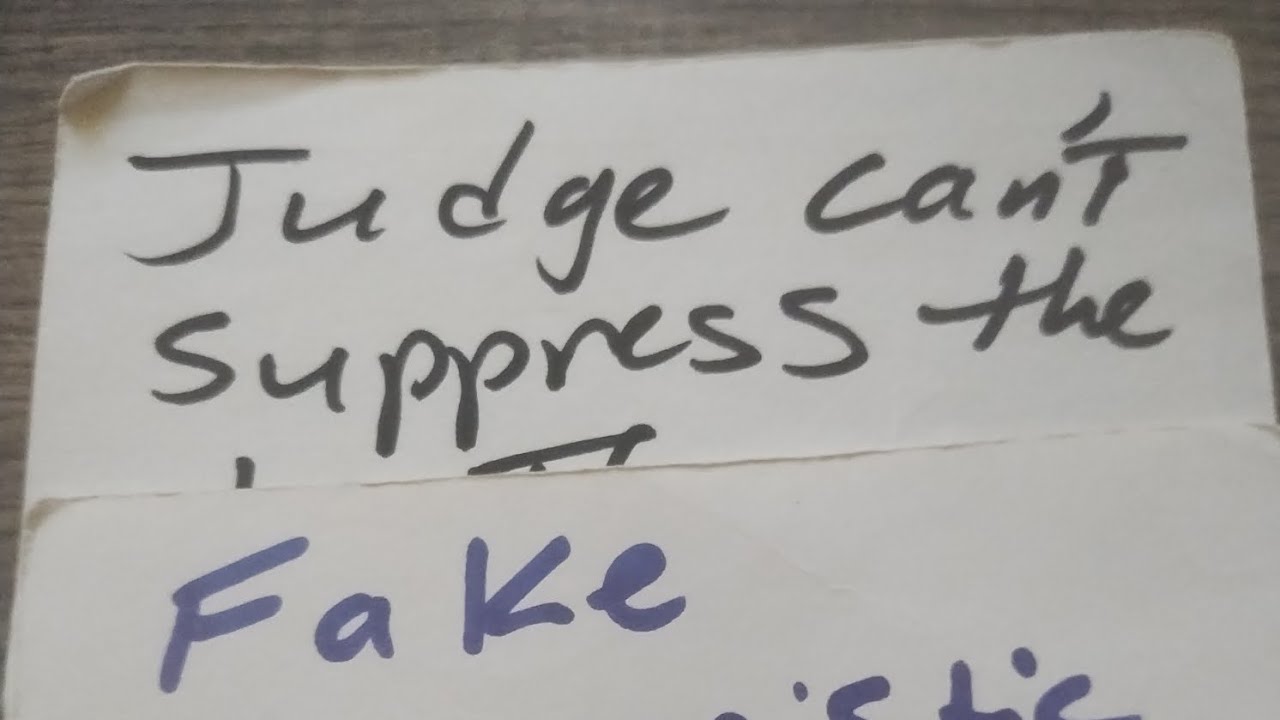 Judge can't
suppress the
Fake